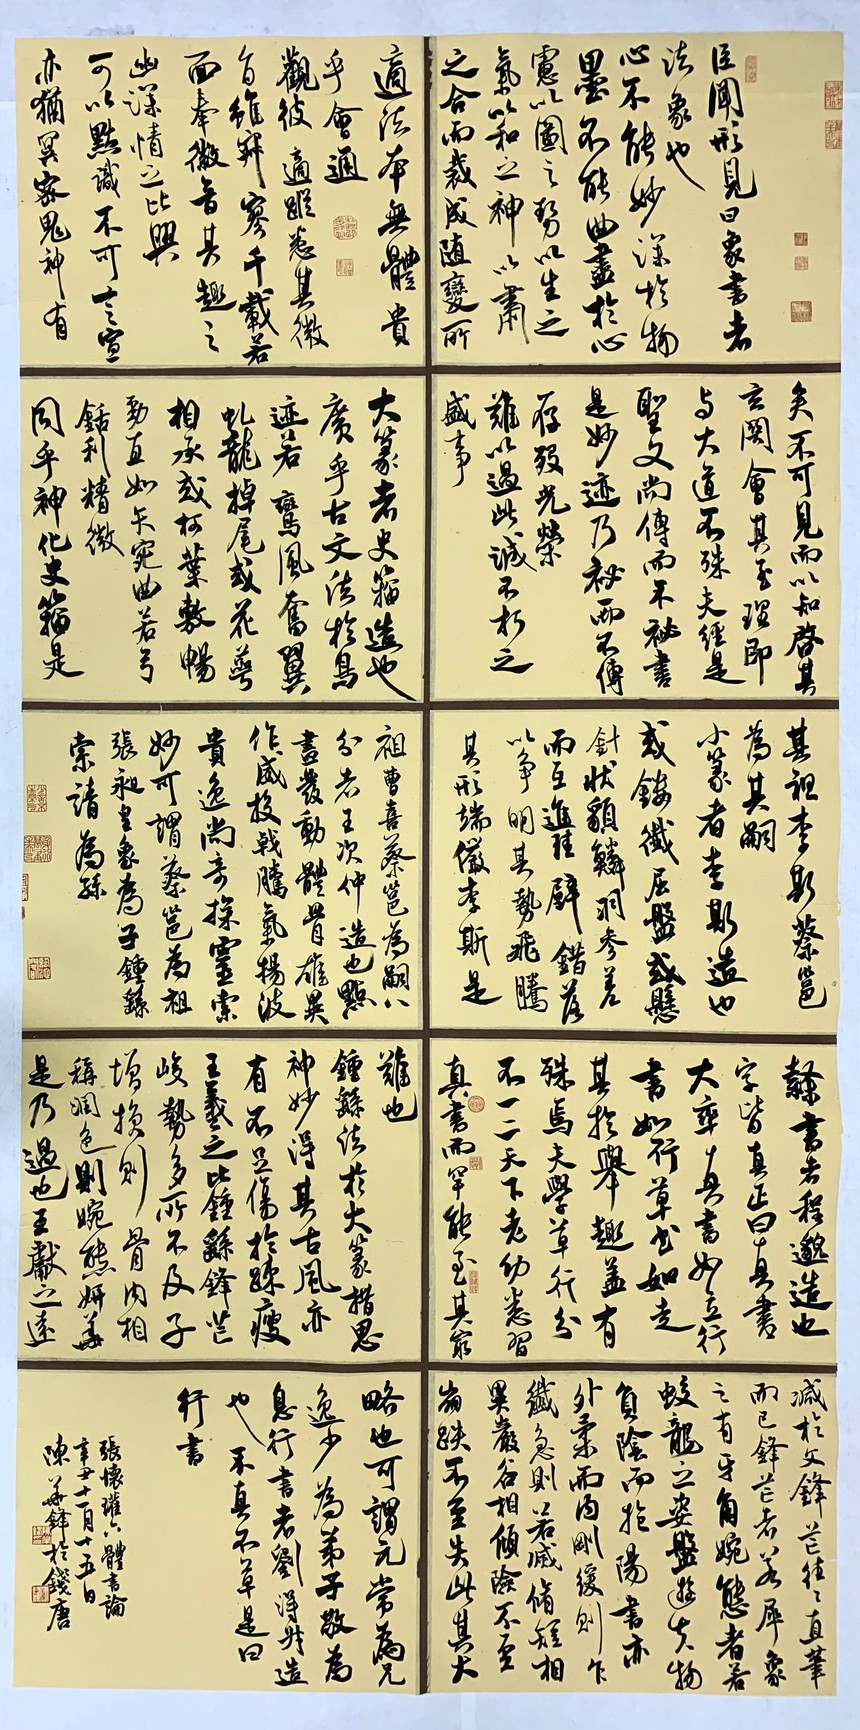 臣聞形見曰象書者
法象也
心不能妙深於物
墨不能曲盡於心
慮以圖之勢以生之
氣以和之神以肅
之合而裁成隨變所
適法本無體貴
乎會通
觀彼適蹤悉其微
旨雖寂寥千載若
面奉徽音其趣之
幽深情之比興
可以默識不可言宣
亦猶冥密鬼神有
矣不可見而以知啓其
玄關會其至理即
与大道不殊夫經是
聖文尚傳而不祕書
是妙迹乃祕而不傳
存歿光榮
難以過此誠不朽之
盛事
大篆者史籀造也
廣乎古文法於鳥
迹若鸞鳳奮翼
虬龍掉尾或花萼
相承或柯葉敷暢
勁直如矢宛曲若弓
銛利精微
同乎神化史籀是
其祖李斯蔡邕
為其嗣
小篆者李斯造也
或鏤纖屈盤或懸
針狀貌鱗羽參差
而互進珪璧錯落
以爭明其勢飛騰
其形端儼李斯是
祖曹喜蔡邕為嗣八
分者王次仲造也點
畫發動體骨雄異
作威投戟騰氣揚波
貴逸尚奇探靈索
妙可謂蔡邕為祖
張昶皇象為子鍾繇
索靖為孫
隸書者程邈造也
字皆真正曰真書
大率真書如立行
書如行草書如走
其於舉趣蓋有
殊焉夫學草行分
不一二天下老幼悉習
真書而罕能至其最
難也
鍾繇法於大篆措思
神妙得其古風亦
有不足傷於疎瘦
王羲之比鍾繇鋒芒
峻勢多所不及于
增損則骨肉相
稱潤色則婉態妍華
是乃過也王獻之遠
減於父鋒芒往往直筆
而已鋒芒者若犀象
之有牙角婉態者若
蛟龍之姿盤遊夫物
負陰而抱陽書亦
外柔而內剛緩則乍
纖急則若滅修短相
異巖谷相傾險不至
崩跌不至失此其大
略也可謂元常為兄
逸少為弟子敬為
息行書者劉德升造
也不真不草是曰
行書
張懷瓘六體書論
辛丑十一月十五日
陳華鋒於錢唐